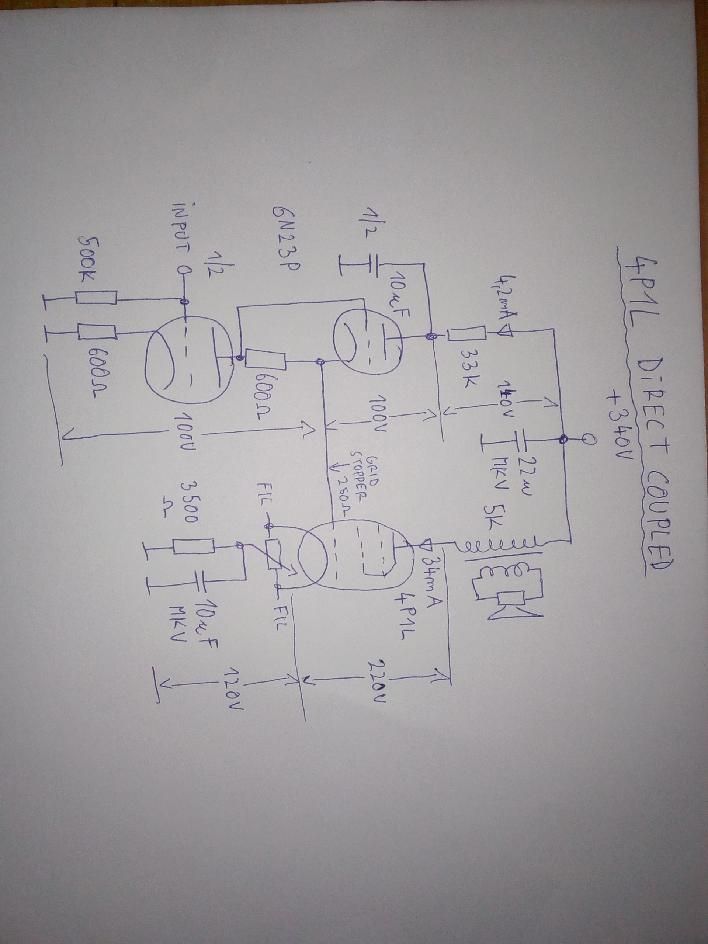 4P1L DIRECT COUPLED
+340V
4,2mA
33K
140V
22u
MKV
5K
34mA
4P1L
1/2
10uF
100V
6N23P
600Ω
GRID
STOPPER
250Ω
220V
1/2
INPUT
500K
600Ω
100V
FIL
FIL
3500
Ω
10uF
MKV
120V